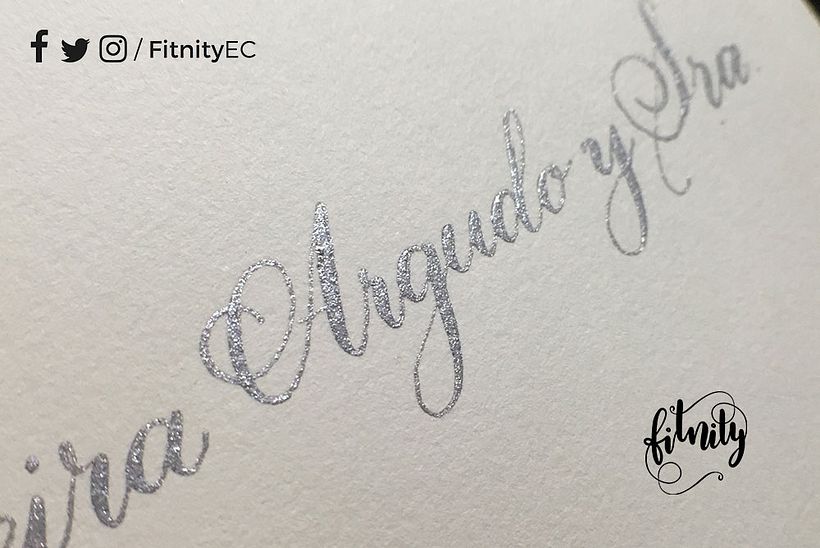 / FitnityEC
ira Argudo y Sra.
fitnity